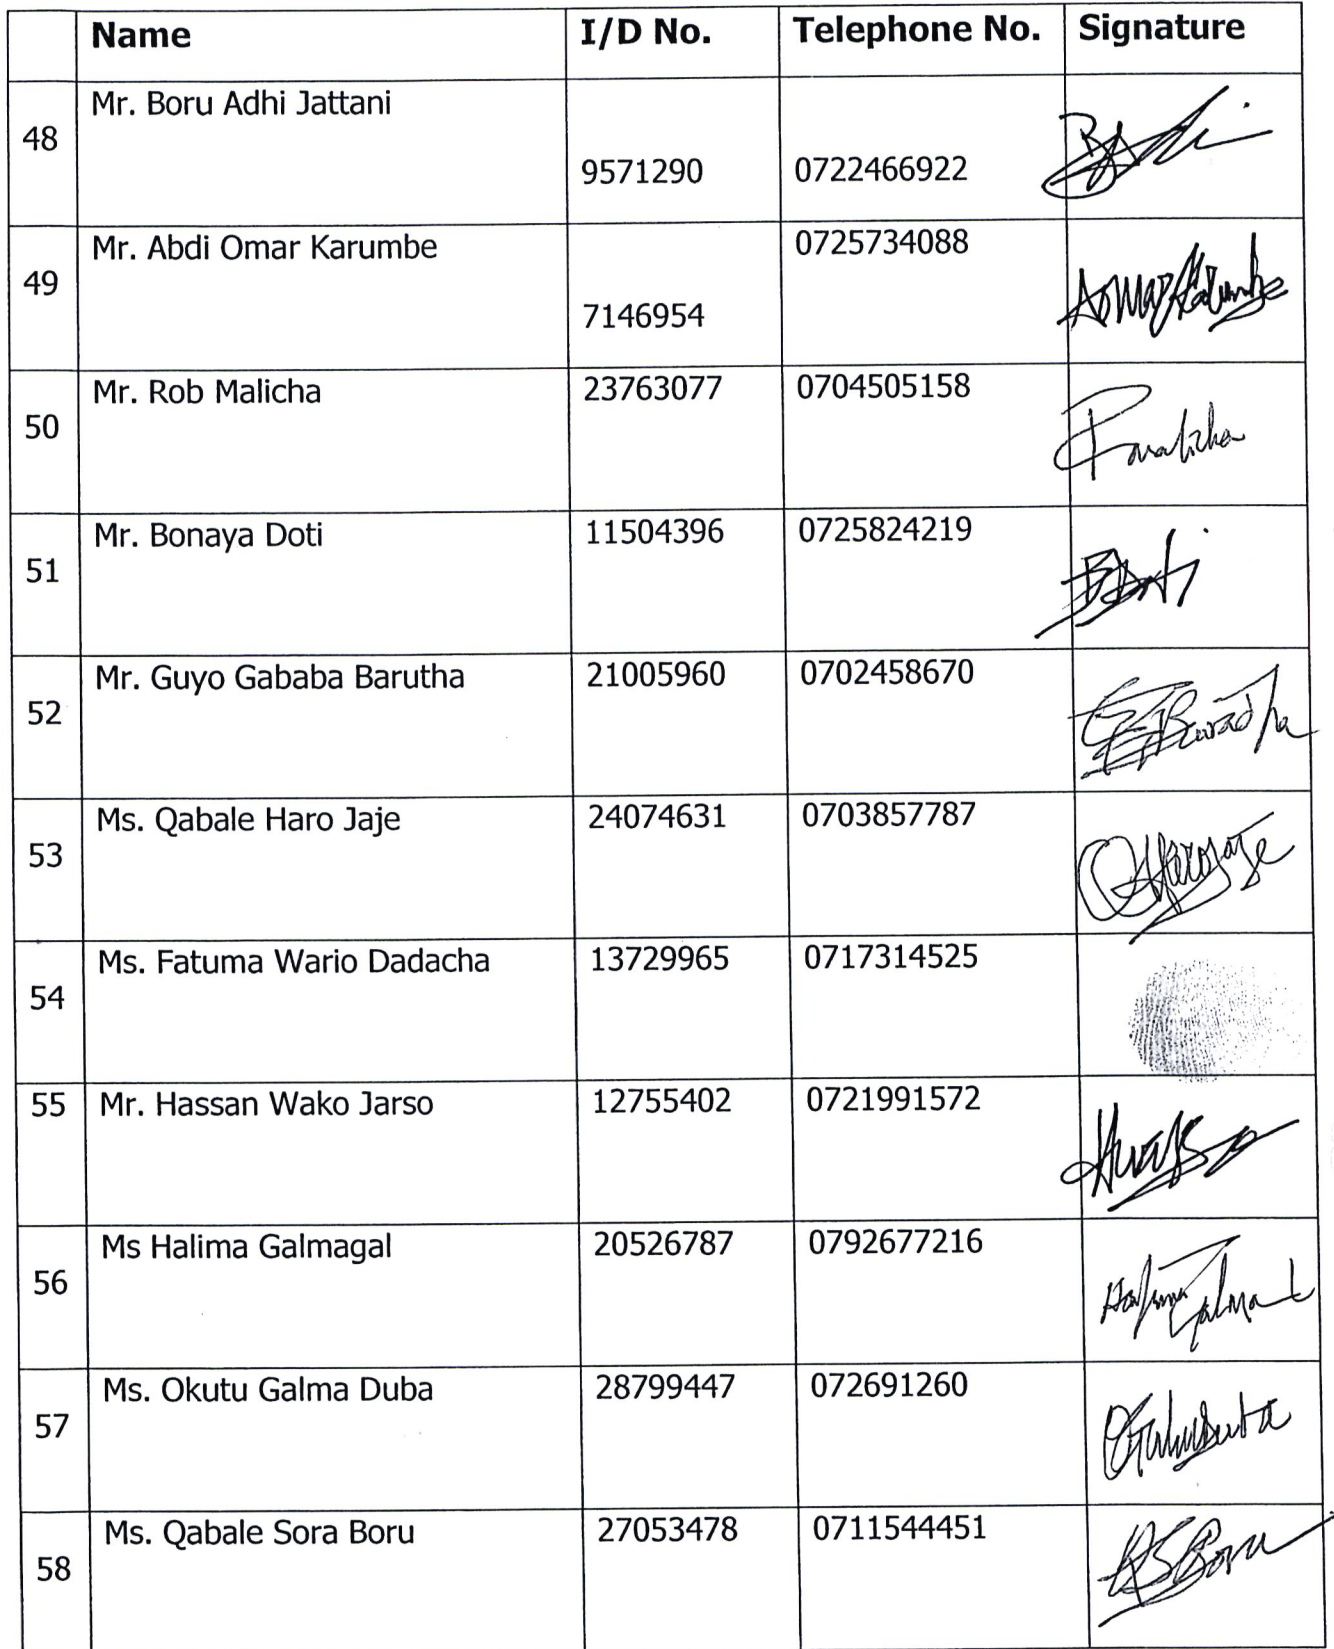 Name I/D No. Telephone No. Signature
48 Mr. Boru Adhi Jattani 9571290 0722466922
49 Mr. Abdi Omar Karumbe 7146954 0725734088
50 Mr. Rob Malicha 23763077 0704505158
51 Mr. Bonaya Doti 11504396 0725824219
52 Mr. Guyo Gababa Barutha 21005960 0702458670
53 Ms. Qabale Haro Jaje 24074631 0703857787
54 Ms. Fatuma Wario Dadacha 13729965 0717314525
55 Mr. Hassan Wako Jarso 12755402 0721991572
56 Ms Halima Galmagal 20526787 0792677216
57 Ms. Okutu Galma Duba 28799447 072691260
58 Ms. Qabale Sora Boru 27053478 0711544451